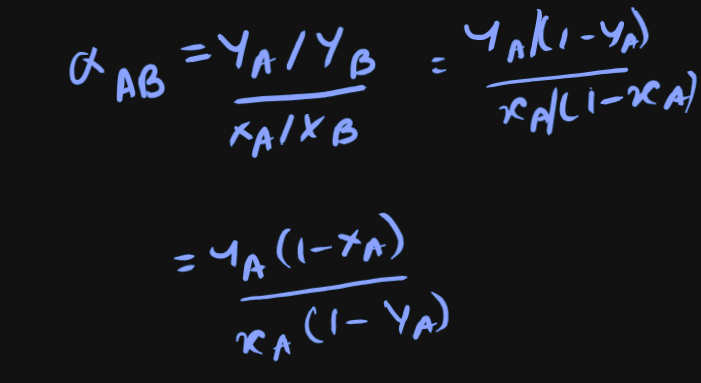 α_AB = (y_A / y_B) / (x_A / x_B) = (y_A/(1-y_A)) / (x_A/(1-x_A))
= y_A (1-x_A) / x_A (1-y_A)